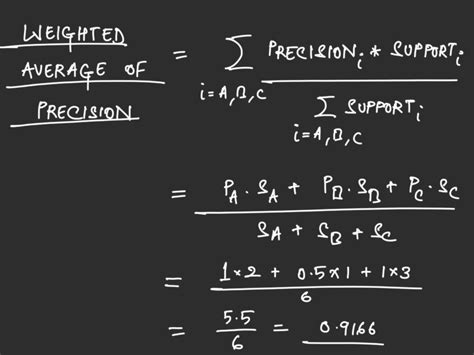 WEIGHTED
AVERAGE OF
PRECISION
= ∑ PRECISIONᵢ * SUPPORTᵢ
i=A,B,C
∑ SUPPORTᵢ
i=A,B,C
= P_A . S_A + P_B . S_B + P_C . S_C
S_A + S_B + S_C
= 1×2 + 0.5×1 + 1×3
6
= 5.5
6
= 0.9166